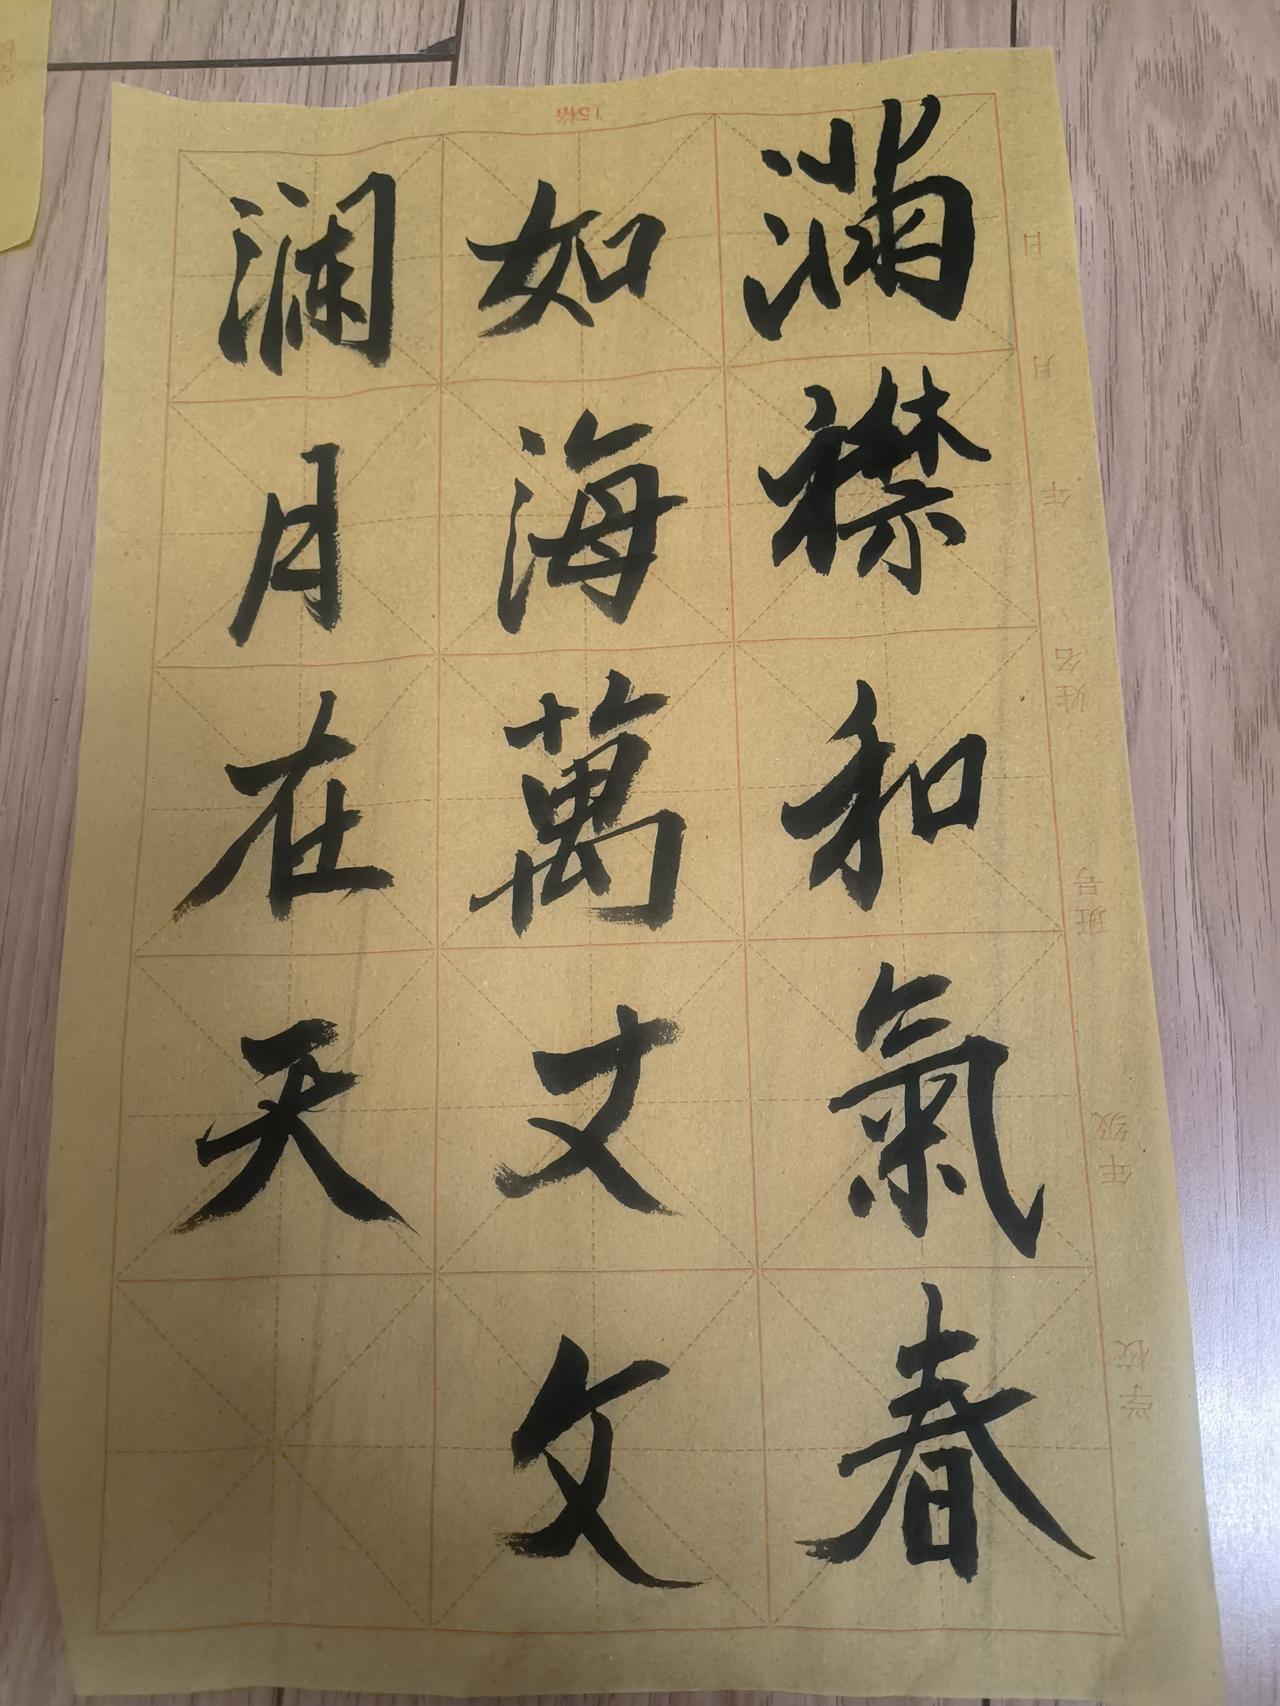 满襟和氣春
如海萬丈文
澜月在天
15格
日
月
年
姓名
班号
年级
学校